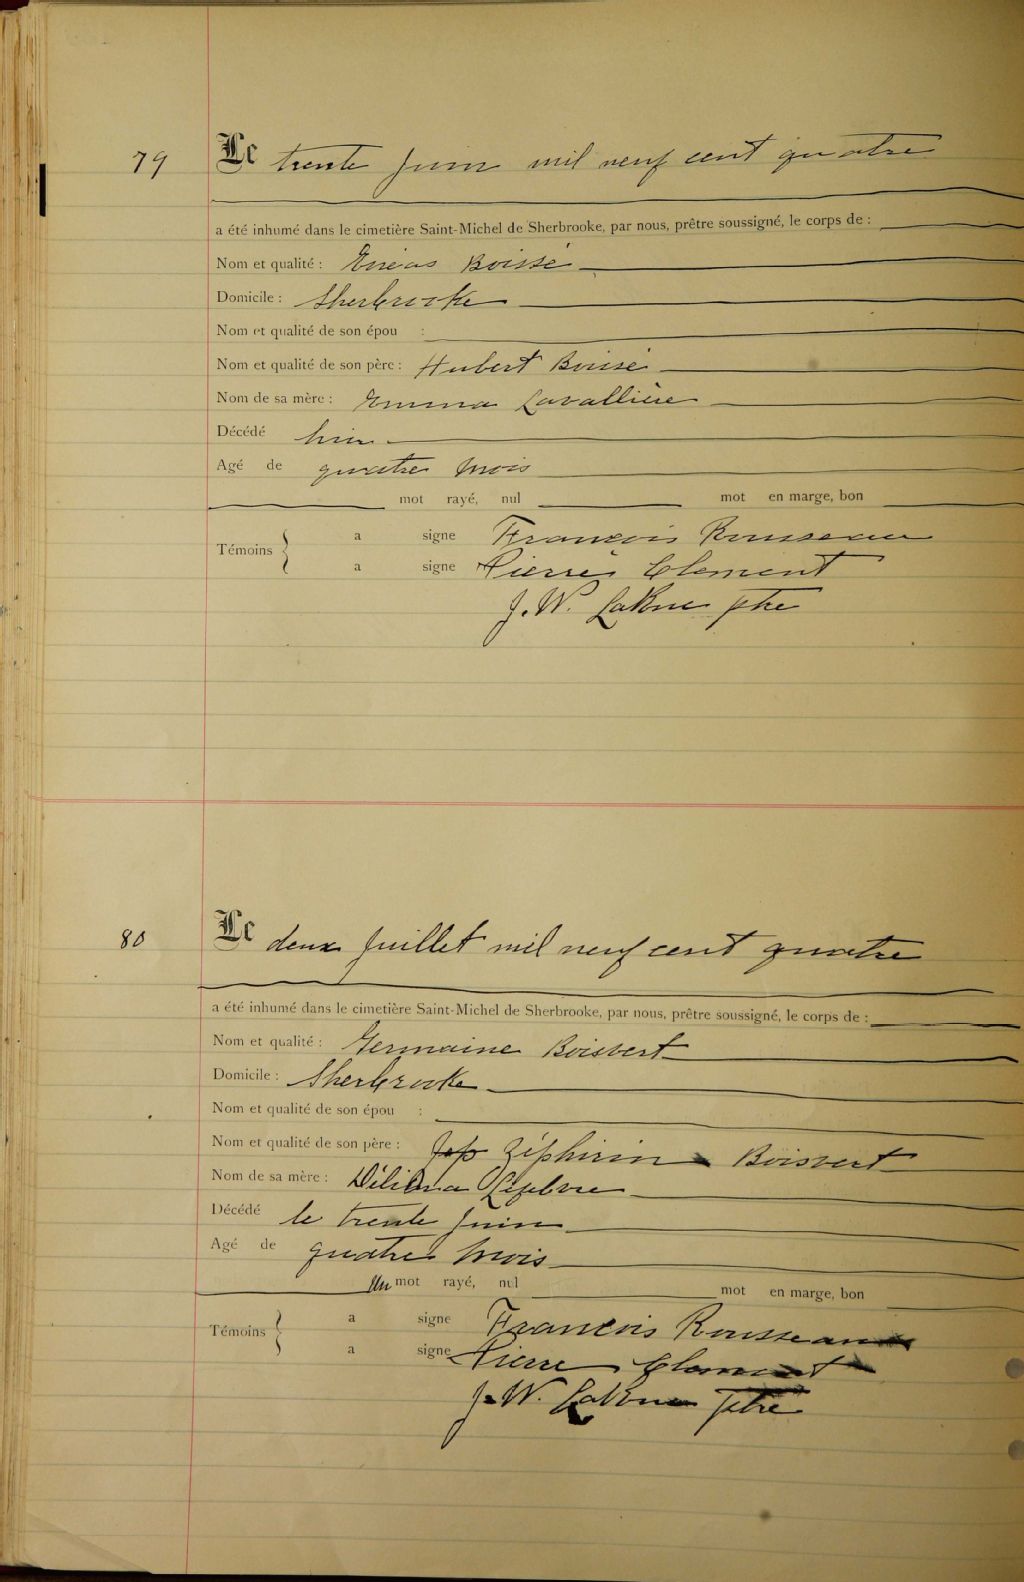 79 Le trente Juin mil neuf cent quatre
a été inhumé dans le cimetière Saint-Michel de Sherbrooke, par nous, prêtre soussigné, le corps de :
Nom et qualité : Enéas Boissé
Domicile : Sherbrooke
Nom et qualité de son épou :
Nom et qualité de son père : Hubert Boissé
Nom de sa mère : Emma Lavallière
Décédé hier
Agé de quatre mois
mot rayé, nul mot en marge, bon
Témoins { a signe François Rousseau
a signe Pierre Clement
J. W. LaRue ptre
80 Le deux Juillet mil neuf cent quatre
a été inhumé dans le cimetière Saint-Michel de Sherbrooke, par nous, prêtre soussigné, le corps de :
Nom et qualité : Germaine Boisvert
Domicile : Sherbrooke
Nom et qualité de son épou :
Nom et qualité de son père : Jos Zéphirin Boisvert
Nom de sa mère : Lefebvre
Décédé le trente Juin
Agé de quatre mois
Un mot rayé, nul mot en marge, bon
Témoins { a signe François Rousseau
a signe Pierre Clement
J. W. LaRue ptre